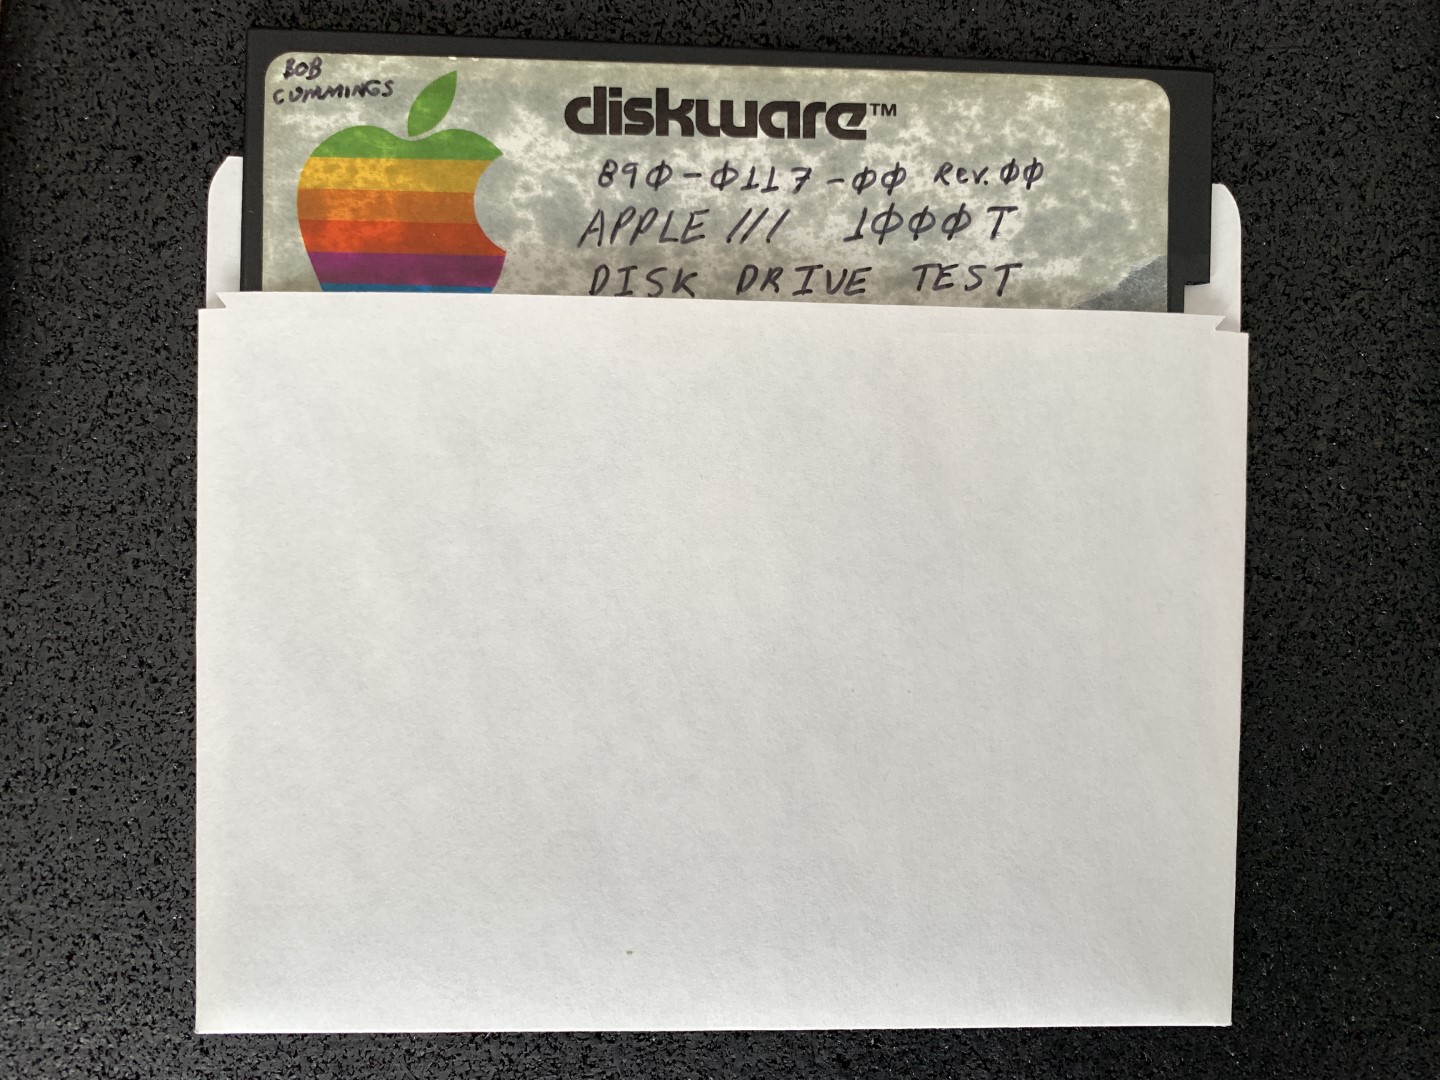 BOB
CUMMINGS
diskware™
890-0117-00 Rev. 00
APPLE /// 1000T
DISK DRIVE TEST